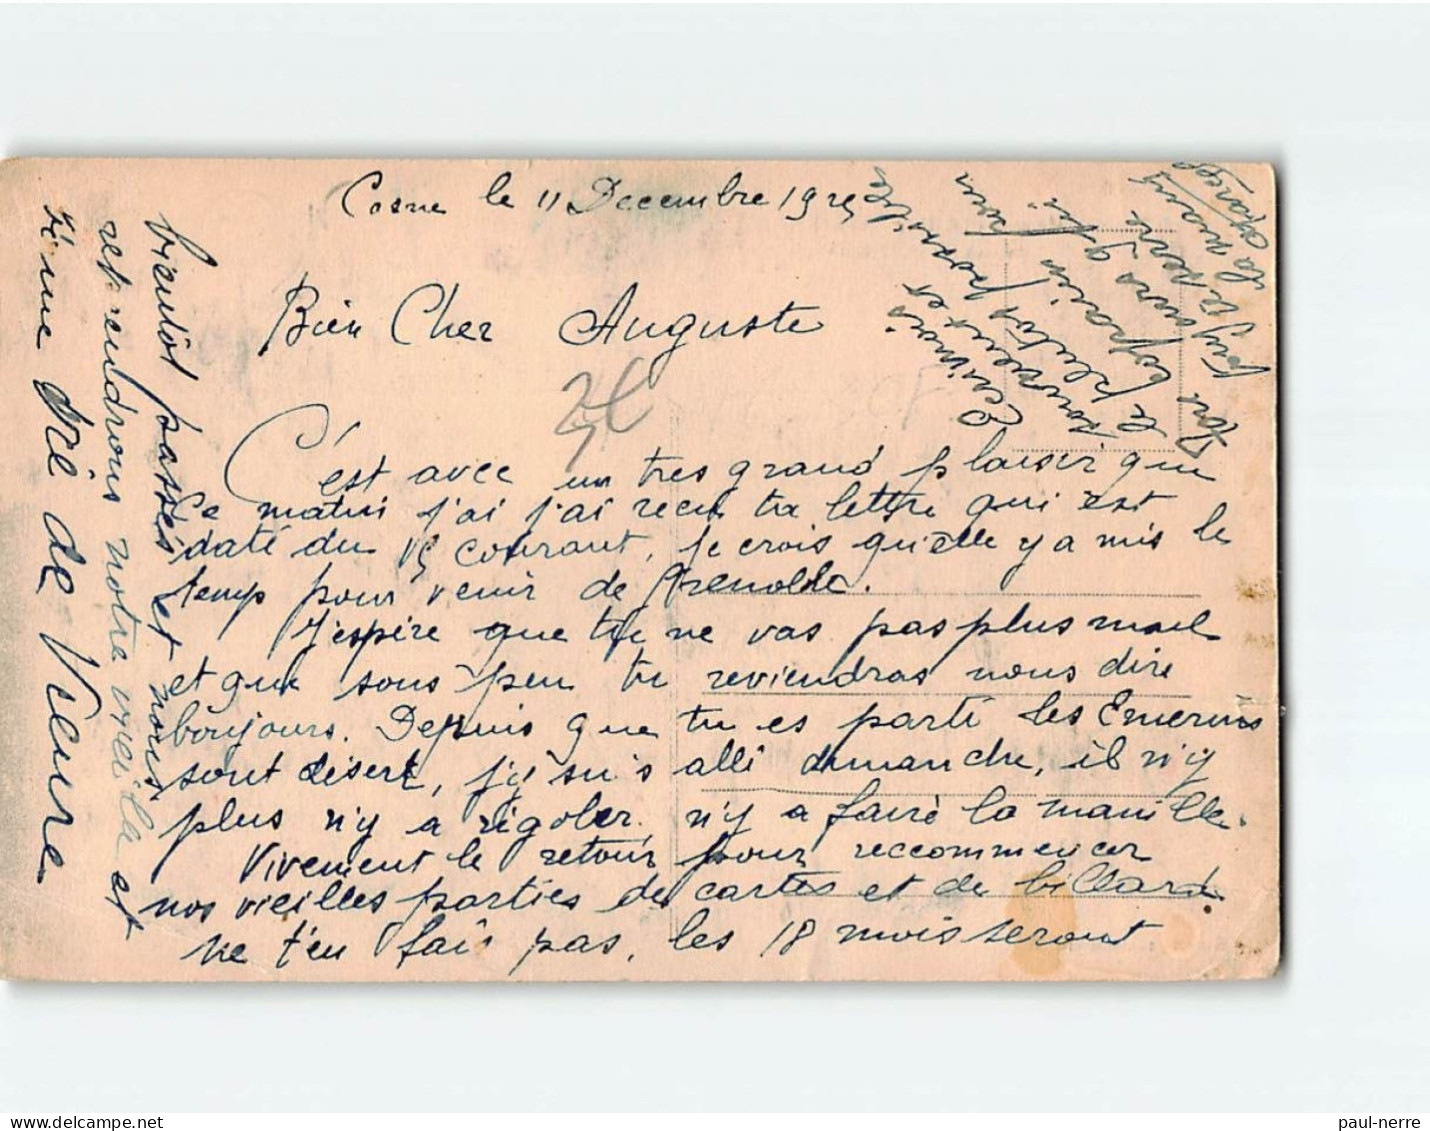 Cosne le 11 Decembre 192
Bien Cher Auguste
C'est avec un tres grand plaisir que
ce matin j'ai j'ai recu ta lettre qui est
daté du courant, je crois qu'elle y a mis le
temp pour venir de Grenoble.
J'espére que tu ne vas pas plus mal
et que sous peu tu reviendras nous dire
boujours. Depuis que tu es parti les
sont désert, j'y suis allé dimanche, il n'y
plus n'y a rigoler, n'y a faire la manille.
Vivement le retour pour reccommencer
nos vieilles parties de cartes et de billard.
ne t'en fais pas, les 18 mois seront
bientôt passés et nous
reprendrons notre vieille et
de Vieure
Ecrivez
souvent et
le plutot possible
Ton copain
toujours
serre
la main
paul-nerre